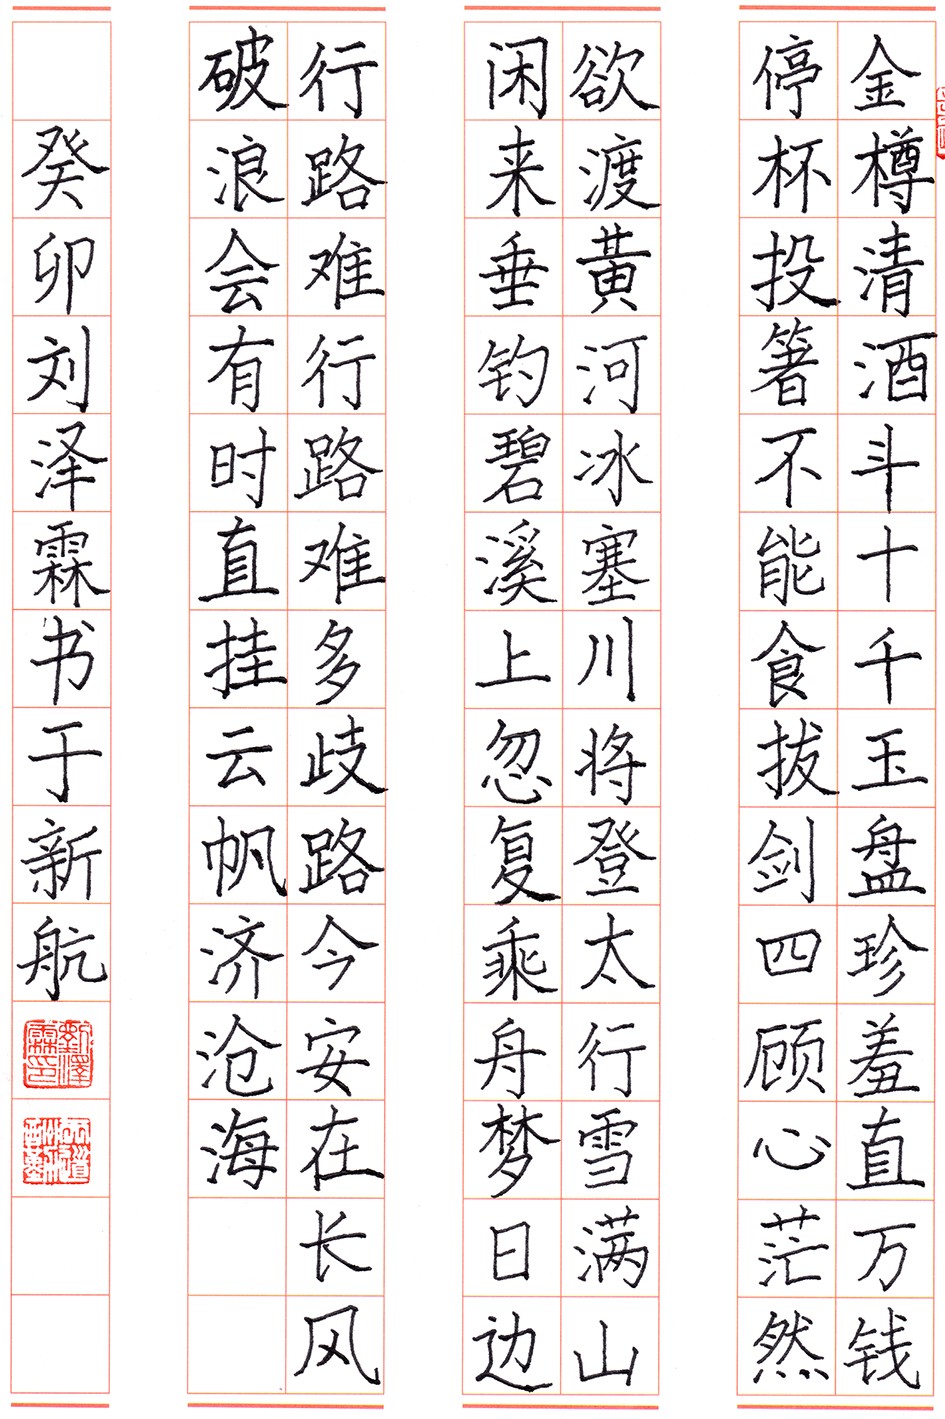 金樽清酒斗十千玉盘珍羞直万钱
停杯投箸不能食拔剑四顾心茫然
欲渡黄河冰塞川将登太行雪满山
闲来垂钓碧溪上忽复乘舟梦日边
行路难行路难多歧路今安在长风
破浪会有时直挂云帆济沧海
癸卯刘泽霖书于新航
劉澤霖印